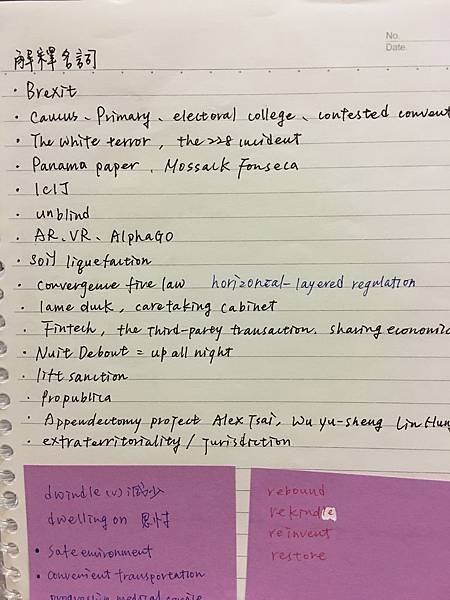 No.
Date.
解釋名詞
· Brexit
· Caucus、Primary、electoral college、contested convent
· The white terror, the 228 incident
· Panama paper、Mossack Fonseca
· ICIJ
· unblind
· AR、VR、AlphaGO
· soil liquefaction
· convergence five law horizontal-layered regulation
· lame duck, caretaking cabinet
· Fintech, the third-party transaction. sharing economic
· Nuit Debout = up all night
· lift sanction
· Propublica
· Appendectomy project Alex Tsai, Wu Yu-sheng Lin Hung
· extraterritoriality / jurisdiction
dwindle (v) 減少
dwelling on
· safe environment
· convenient transportation
medical
rebound
rekindle
reinvent
restore